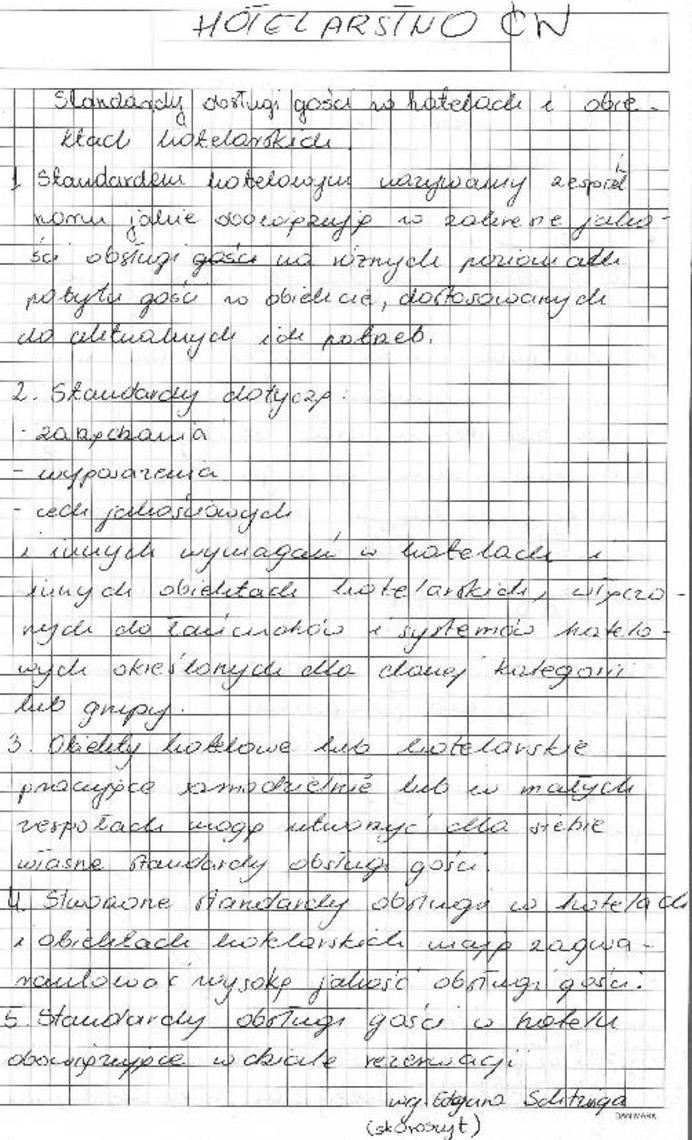 HOTELARSTWO ĆW
Standardy obsługi gości w hotelach i obie-
ktach hotelarskich.
1 Standardem hotelowym nazywamy zespół
norm jakie obowiązują w zakresie jako-
ści obsługi gości na różnych poziomach
pobytu gości w obiekcie, dostosowanych
do aktualnych ich potrzeb.
2. Standardy dotyczą:
- zarządzania
- wyposażenia
- cech jakościowych
i innych wymagań w hotelach i
innych obiektach hotelarskich, włączo-
nych do łańcuchów i systemów hotelo-
wych określonych dla danej kategorii
lub grupy.
3. Obiekty hotelowe lub hotelarskie
pracujące samodzielnie lub w małych
zespołach mogą utworzyć dla siebie
własne standardy obsługi gości.
4. Stworzone standardy obsługi w hotelach
i obiektach hotelarskich mają zagwa-
rantować wysoką jakość obsługi gości.
5. Standardy obsługi gości w hotelu
obowiązujące w dziale rezerwacji
wg Edgara
(skoroszyt)
DAN MARK